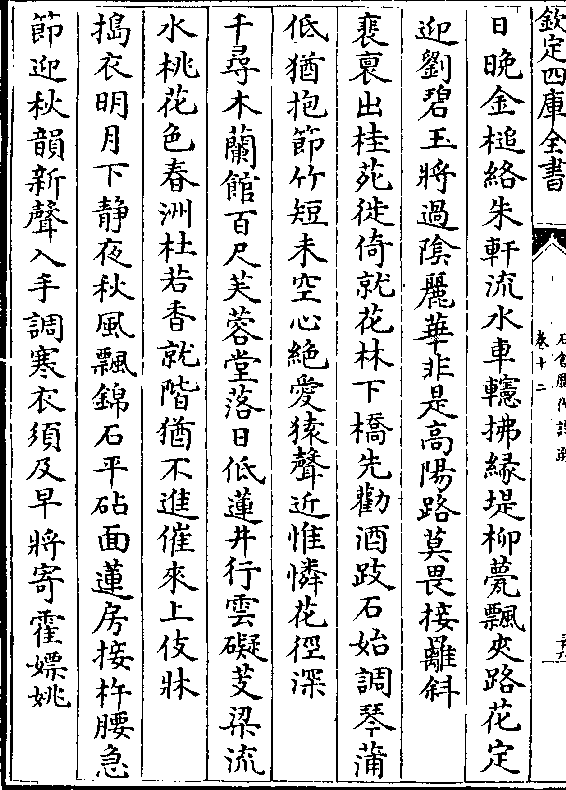 欽定四庫全書
石倉歷代詩選
卷十二
日晚金槌絡朱軒流水車轊拂緣堤柳甍飄夾路花定
迎劉碧玉將過隂麗華非是高陽路莫畏接䍦斜
裵出桂苑徙倚就花林下橋先勸酒跂石始調琴蒲
低猶抱節竹短未空心絶愛猿聲近惟憐花徑深
千尋木蘭館百尺芙蓉堂落日低蓮井行雲礙芰梁流
水桃花色春洲杜若香就階猶不進催來上伎牀
搗衣明月下静夜秋風飄錦石平砧面蓮房接杵腰急
節迎秋韻新聲入手調寒衣須及早將寄霍嫖姚